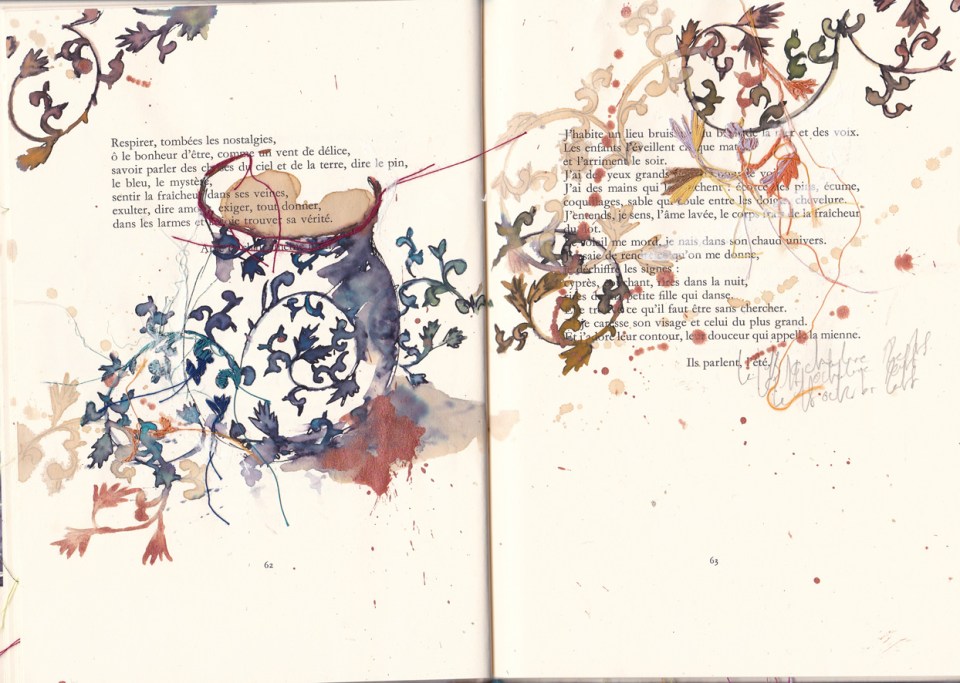 Respirer, tombées les nostalgies,
ô le bonheur d'être, comme un vent de délice,
savoir parler des choses du ciel et de la terre, dire le pin,
le bleu, le mystère,
sentir la fraîcheur dans ses veines,
exulter, dire amour, exiger, tout donner,
dans les larmes et trouver sa vérité.
62
J'habite un lieu de la mer et des voix.
Les enfants l'éveillent chaque matin
et l'arriment le soir.
J'ai des yeux grands
J'ai des mains qui : écorce des pins, écume,
coquillages, sable qui coule entre les doigts, chevelure.
J'entends, je sens, l'âme lavée, le corps de la fraîcheur
du
Le soleil me mord, je nais dans son chaud univers.
J'essaie de rendre ce qu'on me donne,
je déchiffre les signes :
cyprès, chant, rires dans la nuit,
petite fille qui danse.
Je ce qu'il faut être sans chercher.
je caresse son visage et celui du plus grand.
Et j'adore leur contour, leur douceur qui appelle la mienne.
Ils parlent, l'été.
63